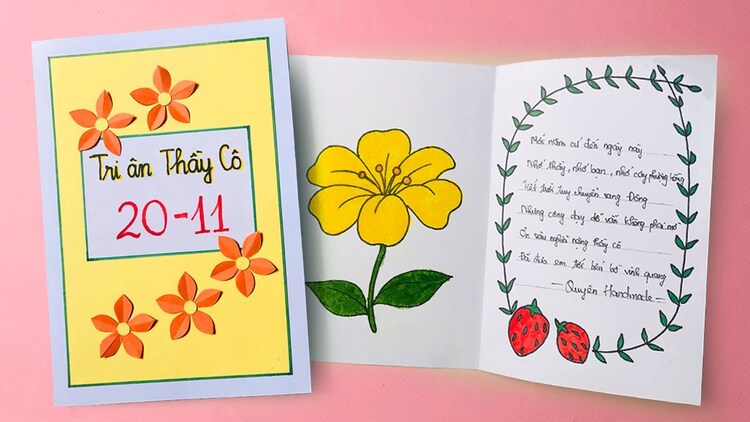 Tri ân Thầy Cô
20-11
Mỗi năm cứ đến ngày này
Nhớ thầy, nhớ bạn, nhớ cây phượng hồng
Tiết trời tuy chuyển sang Đông
Nhưng công dạy dỗ vẫn không phai mờ
Ơn sâu nghĩa nặng thầy cô
Đã đưa em tới bến bờ vinh quang
- Quyên Handmade -